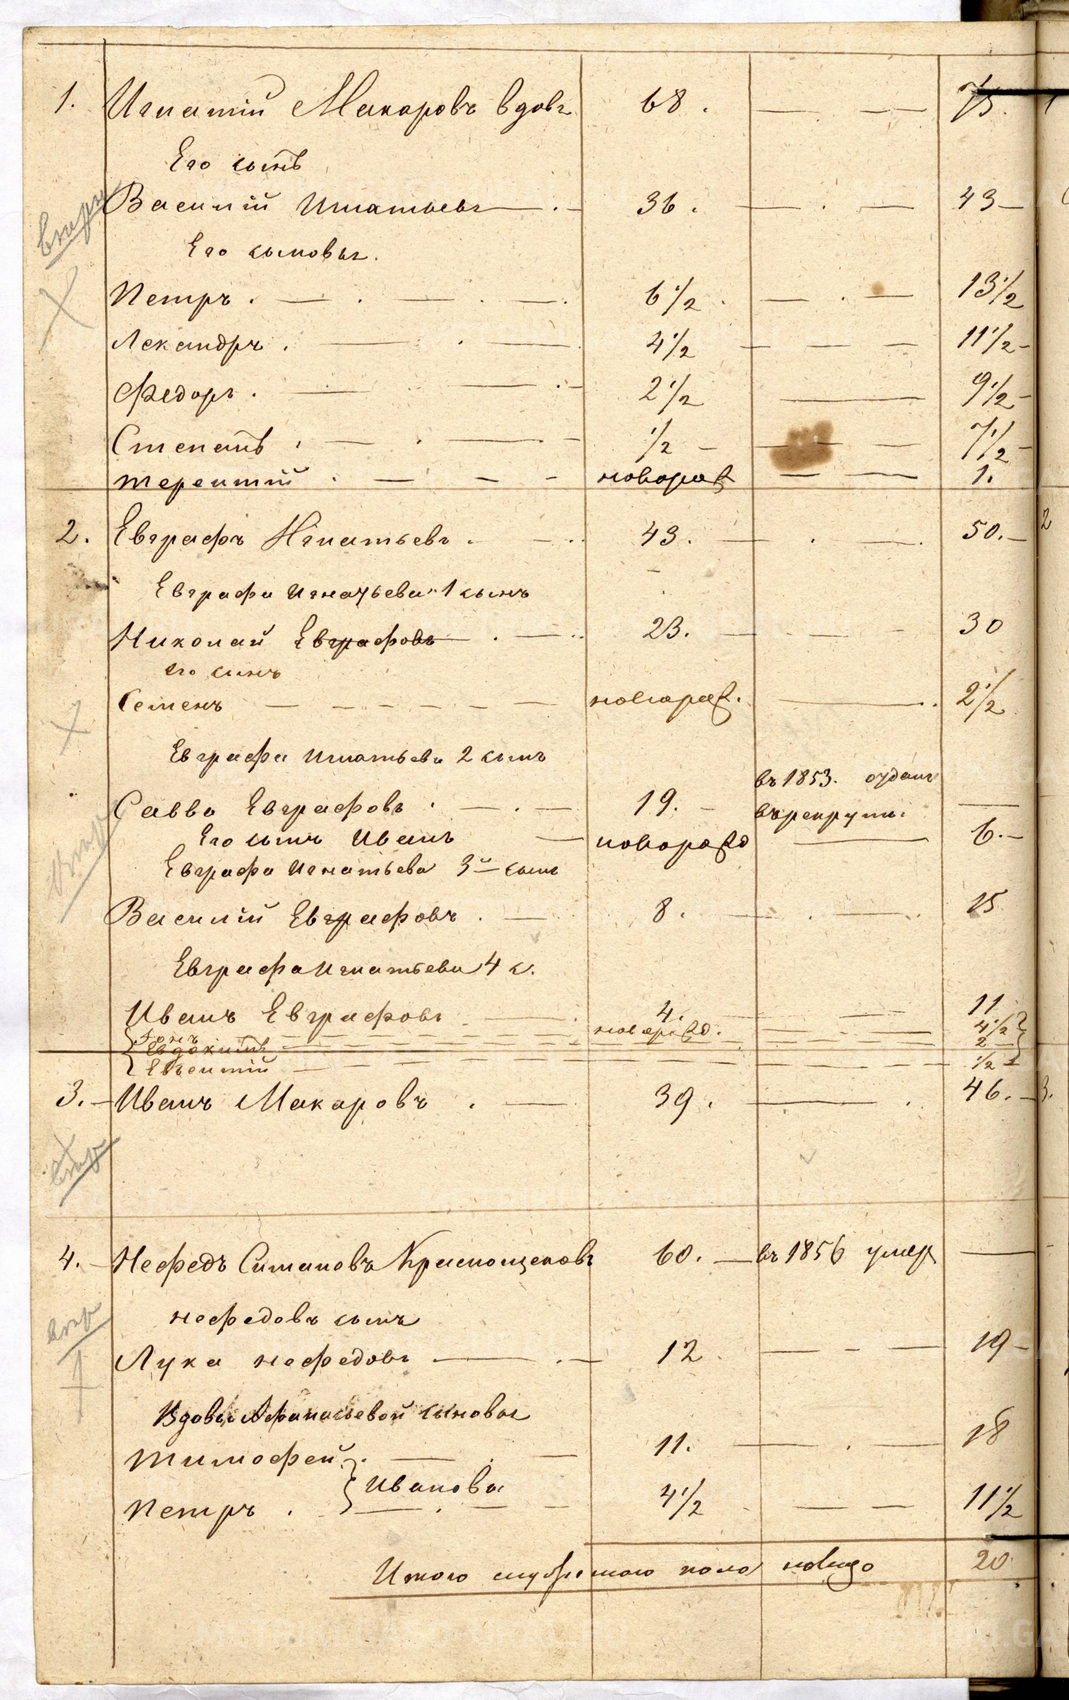 1. Игнатій Макаровъ вдовъ 68. 75.
Его сынъ
Василій Игнатьевъ 36. 43
Его сыновья.
Петръ. 6 1/2 13 1/2
Лександръ. 4 1/2 11 1/2
Федоръ. 2 1/2 9 1/2
Степанъ 1/2 7 1/2
Терентій новорож 1.
2. Евграфъ Игнатьевъ 43. 50.
Евграфа Игнатьева 1 сынъ
Николай Евграфовъ 23. 30
его сынъ
Семенъ новорож. 2 1/2
Евграфа Игнатьева 2 сынъ
въ 1853. отданъ
Савва Евграфовъ 19. въ рекруты.
Его сынъ Иванъ новорожд 6.
Евграфа Игнатьева 3й сынъ
Василій Евграфовъ 8. 15
Евграфа Игнатьева 4 с.
Иванъ Евграфовъ 4. 11
новорожд. 4 1/2
Евдокимъ 2
Евгентій 1/2
3. Иванъ Макаровъ 39. 46.
4. Нефедъ Симановъ Краснощековъ 60. въ 1856 умер
Нефедовъ сынъ
Лука Нефедовъ 12 19
Вдовы Афанасьевой сыновья
Тимофей 11. 18
Ивановы
Петръ 4 1/2 11 1/2
Итого мужескаго пола налицо 20